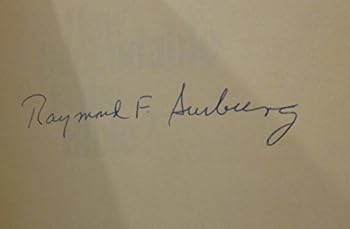 Raymond F. Surburg